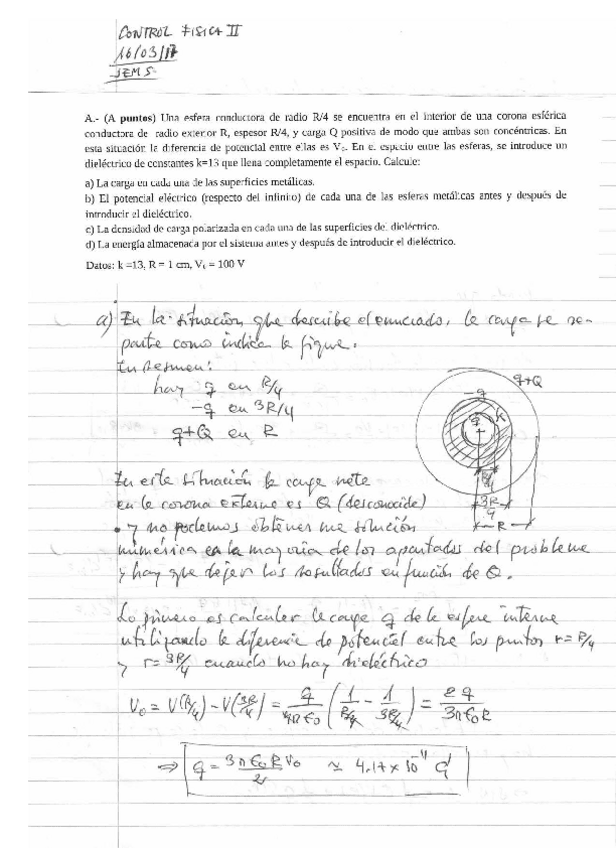 CONTROL FISICA II
16/03/17
JEMS
A.- (A puntos) Una esfera conductora de radio R/4 se encuentra en el interior de una corona esférica
conductora de radio exterior R, espesor R/4, y carga Q positiva de modo que ambas son concéntricas. En
esta situación la diferencia de potencial entre ellas es V₀. En el espacio entre las esferas, se introduce un
dieléctrico de constantes k=13 que llena completamente el espacio. Calcule:
a) La carga en cada una de las superficies metálicas.
b) El potencial eléctrico (respecto del infinito) de cada una de las esferas metálicas antes y después de
introducir el dieléctrico.
c) La densidad de carga polarizada en cada una de las superficies del dieléctrico.
d) La energía almacenada por el sistema antes y después de introducir el dieléctrico.
Datos: k =13, R = 1 cm, V₀ = 100 V
a) En la situación que describe el enunciado, la carga se re-
parte como indica la figura.
En resumen:
hay q en R/4
-q en 3R/4
q+Q en R
q+Q
-q
q
k
R/4
3R/4
R
En esta situación la carga neta
en la corona externa es Q (desconocida)
y no podemos obtener una solución
numérica en la mayoría de los apartados del problema
y hay que dejar los resultados en función de Q.
Lo primero es calcular la carga q de la esfera interna
utilizando la diferencia de potencial entre los puntos r = R/4
y r = 3R/4 cuando no hay dieléctrico
V₀ = V(R/4) - V(3R/4) = q/4πϵ₀ (1/R/4 - 1/3R/4) = 2q/3πϵ₀R
⇒ q = 3πϵ₀RV₀/2 ≃ 4.17 × 10⁻¹¹ C